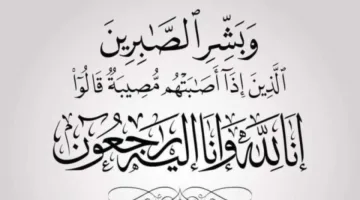 وَبَشِّرِ ٱلصَّـٰبِرِينَ
ٱلَّذِينَ إِذَآ أَصَـٰبَتۡهُم مُّصِيبَةٞ قَالُوٓاْ
إِنَّا لِلَّهِ وَإِنَّآ إِلَيۡهِ رَٰجِعُونَ